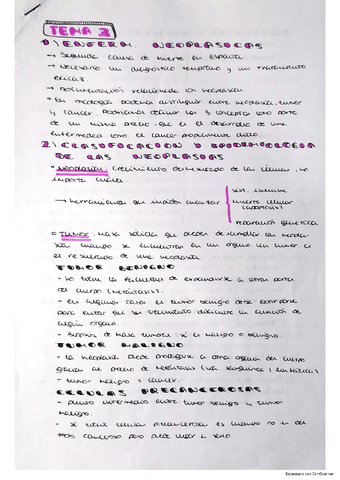 TEMA 3
1) ENFERM. NEOPLASICAS
→ Segunda causa de muerte en España
→ Necesario un diagnóstico temprano y un tratamiento
eficaz.
→ Documentación relacionada con neoplasia
- En oncología podemos distinguir entre neoplasia, tumor
y cancer. Podríamos definir los 3 conceptos como parte
de un mismo proceso que es el desarrollo de una
enfermedad como el cancer propiamente dicho.
2) CLASIFICACION Y EPIDEMIOLOGIA
DE LAS NEOPLASIAS
- Neoplasia: crecimiento demasiado de las células, no
importa cuales
→ herramientas que impiden
sist. inmune
muerte celular
(apoptosis)
reparación genética
o Tumor: masa sólida que puede desarrollar las neoplasias
cuando se encuentran en un órgano. Un tumor es
el resultado de una neoplasia.
TUMOR BENIGNO
- No tiene la facultad de expandirse a otras partes
del cuerpo (metástasis).
- En algunos casos el tumor benigno debe extirparse
para evitar que su crecimiento dificulte la función de
algún órgano.
- Biopsia de masa tumoral: si es maligno o benigno
TUMOR MALIGNO
- La neoplasia puede propagarse a otros órganos del cuerpo
gracias al proceso de metástasis (vía sanguínea / linfática)
- Tumor maligno = cancer.
CELULAS PRECANCEROSAS
- punto intermedio entre tumor benigno y tumor
maligno.
- si tiene células precancerosas es cuando no es del
todo canceroso pero puede llegar a serlo
Escaneado con CamScanner